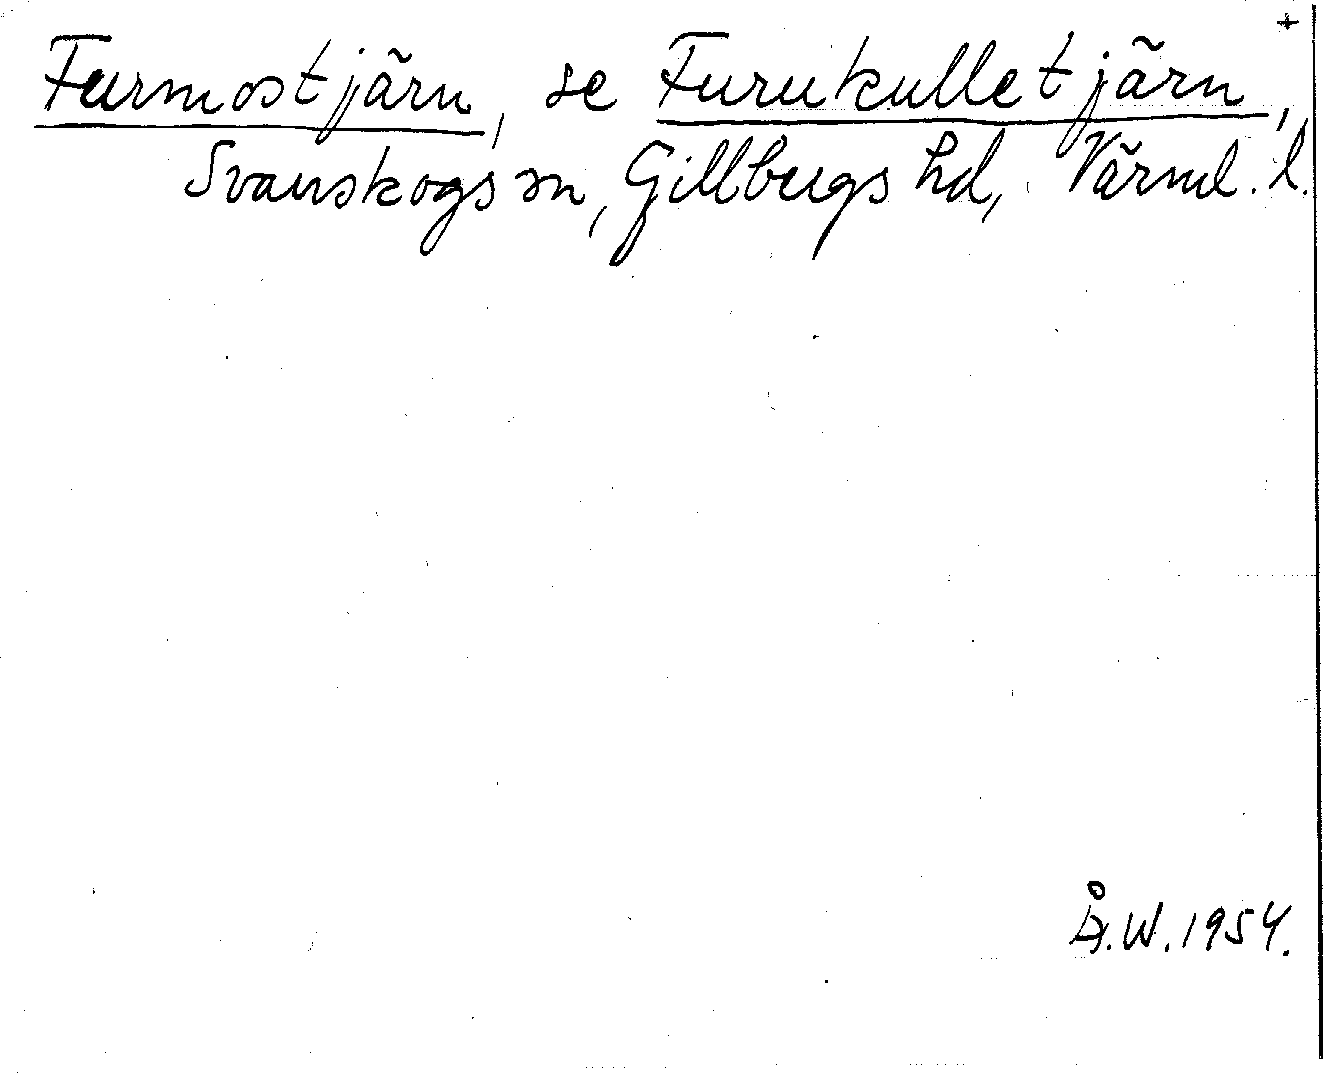 +
Furmostjärn, se Furukulletjärn,
Svanskogs sn, Gillbergs hd, Värml. l.
Å.W. 1954.